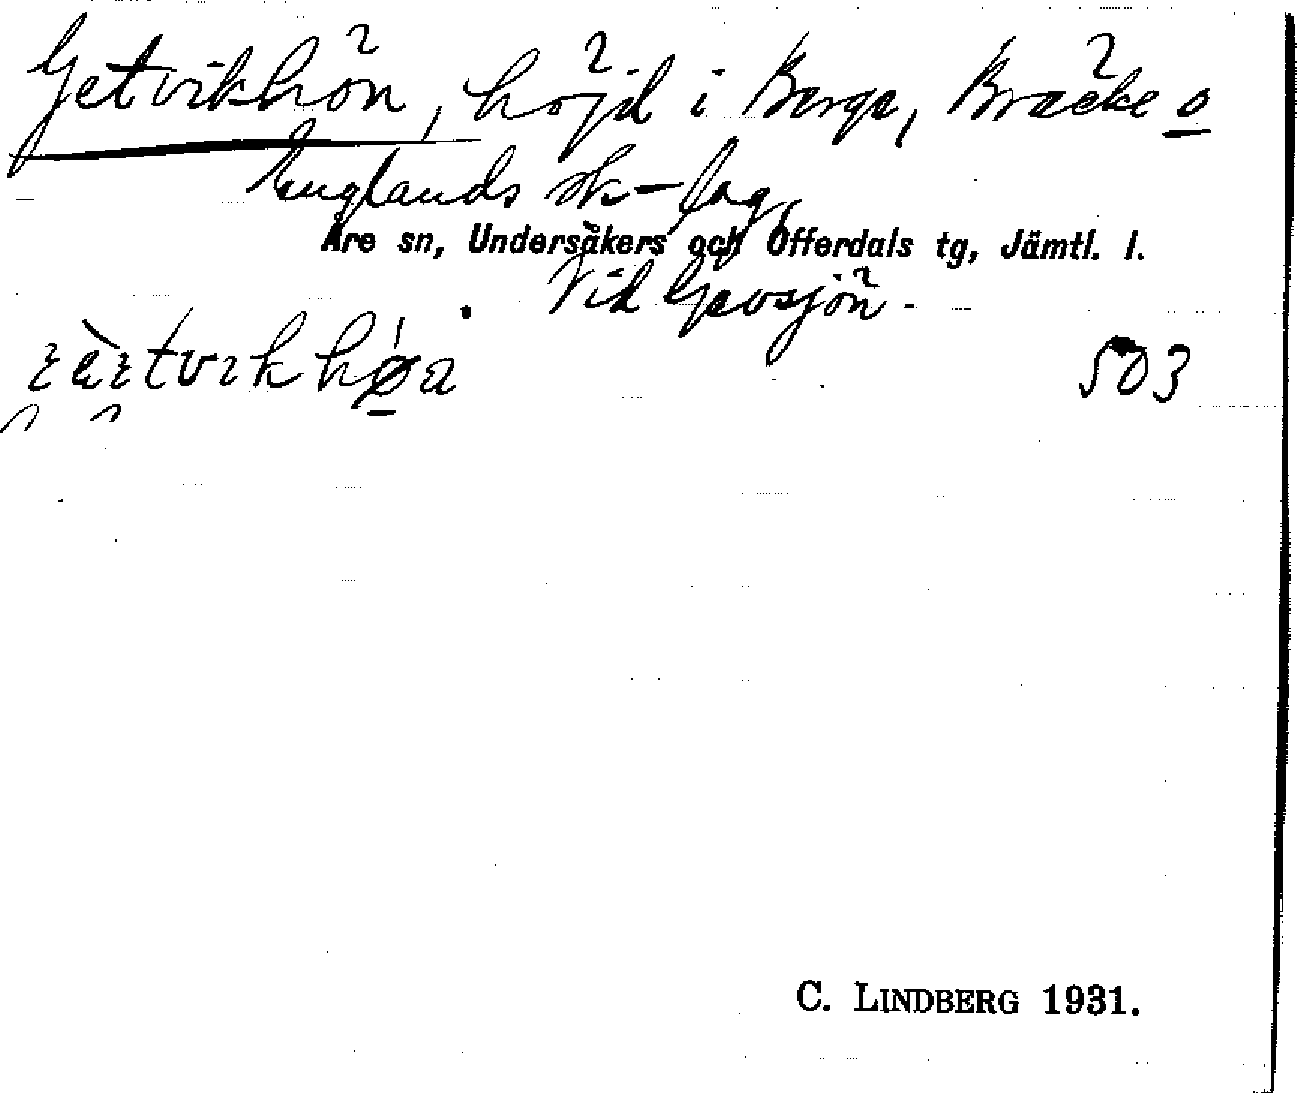 Getvikhön, höjd i Berge, Bräcke o
Englands sk-lag,
Åre sn, Undersåkers och Offerdals tg, Jämtl. l.
Vid Gevsjön.
503
C. LINDBERG 1931.